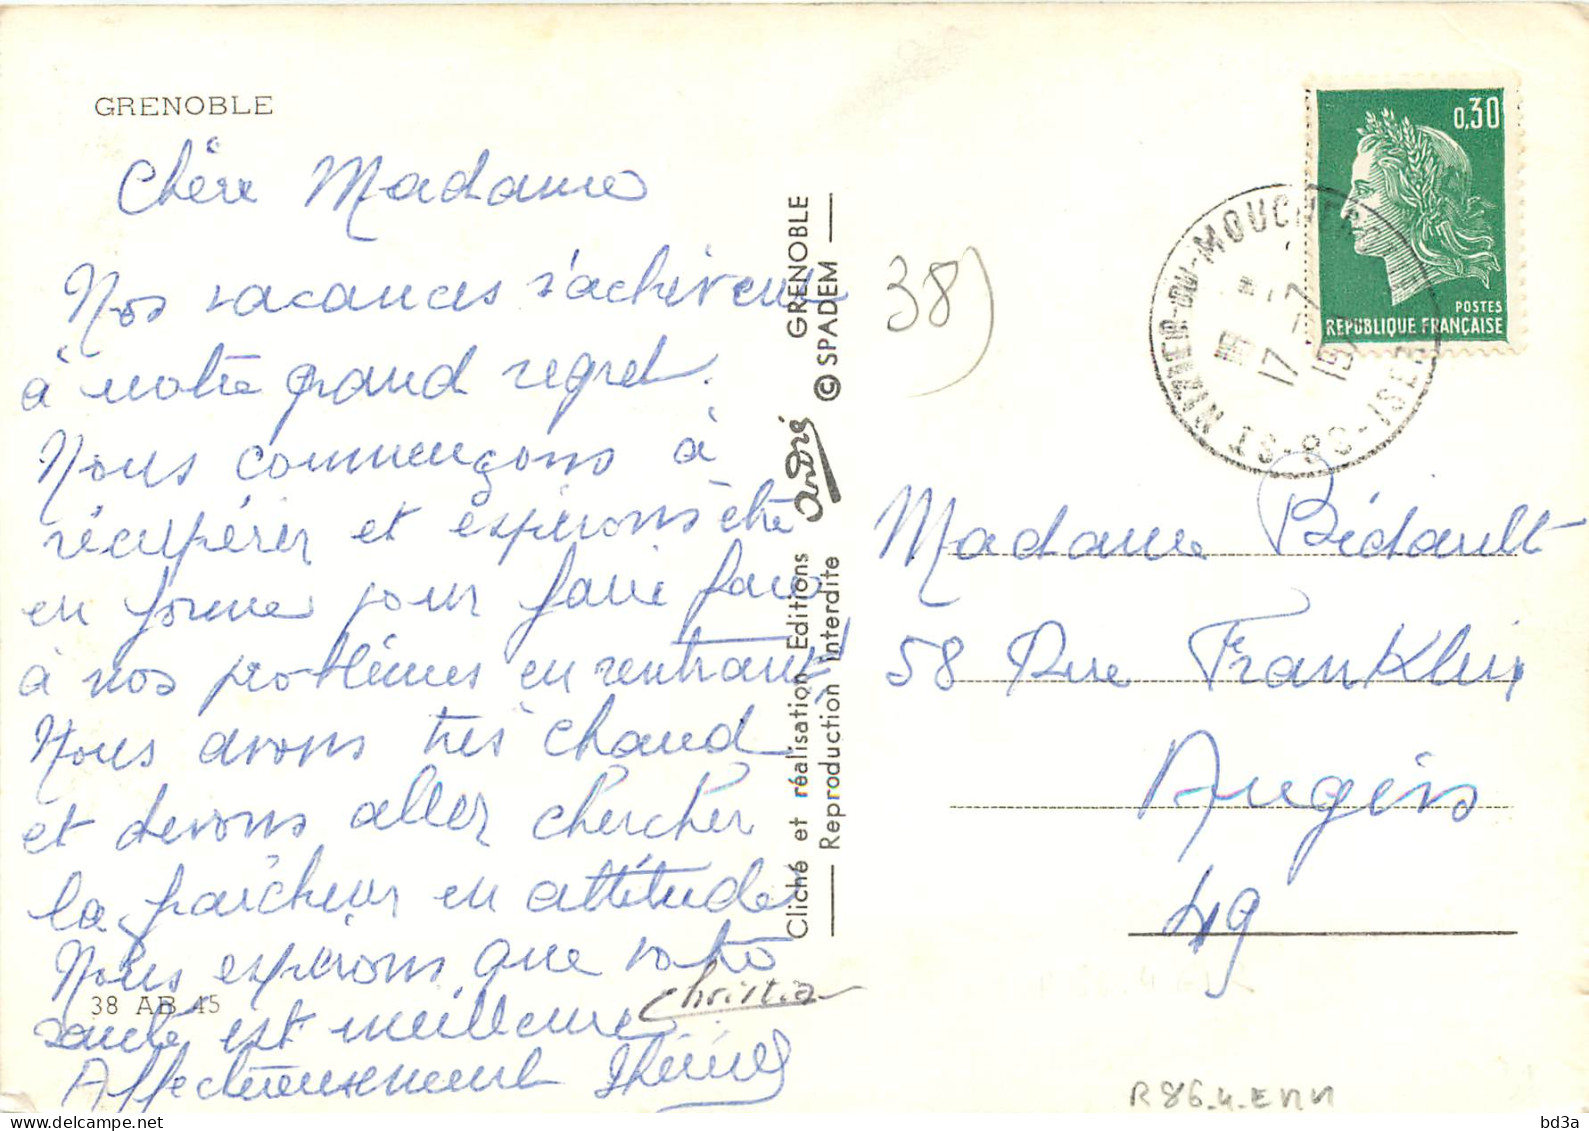 GRENOBLE
Chère Madame
Nos vacances s'achèvent
à notre grand regret.
Nous commençons à
récupérer et espérons être
en forme pour faire face
à nos problèmes en rentrant
Nous avons très chaud
et devons aller chercher
la fraîcheur en altitude
Nous espérons que votre
santé est meilleure
Affectueusement
Christian
38 AB 45
GRENOBLE
© SPADEM
Cliché et réalisation Editions André
Reproduction Interdite
38)
0,30
POSTES
REPUBLIQUE FRANÇAISE
ST NIZIER-DU-MOUCHEROTTE
17
38-ISERE
Madame Bédault
58 Rue Franklin
Angers
49
R86.4.ENN
bd3a